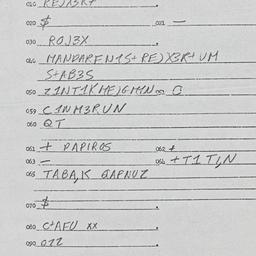 010 PEJX3R+
020 $ 021 —
030 ROJ3X
040 MANDARFN1S+ PEJX3R+ UM
S+AB3S
050 Z1NT1KMEJGM1N 051 0
059 C1NM3RUN
060 QT
061 + PAPIROS 062 +
063 — 064 + T1T1,N
065 TABA,K GAPNUZ
070 $
080 C+AFU XX
090 012